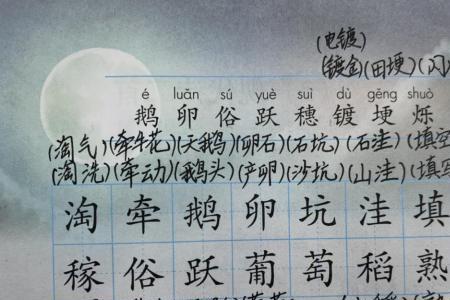 (电镀)
(镀金)(田埂)(闪
é luǎn sú yuè suì dù gěng shuò
鹅 卵 俗 跃 穗 镀 埂 烁
(淘气)(牵牛花)(天鹅)(卵石)(石坑)(石洼)(填空
(淘洗)(牵动)(鹅头)(产卵)(沙坑)(山洼)(填写
淘 牵 鹅 卵 坑 洼 填
稼 俗 跃 葡 萄 稻 熟